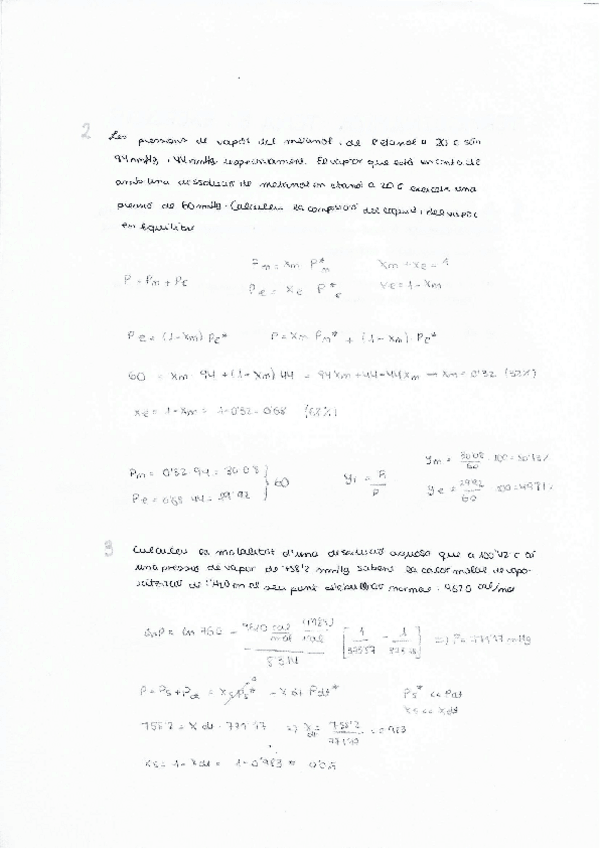 2 Les pressions de vapor del metanol i de l'etanol a 20 C són
94 mmHg i 44 mmHg respectivament. El vapor que està en contacte
amb una dissolució de metanol en etanol a 20 C exerceix una
pressió de 60 mmHg. Calculeu la composició del líquid i del vapor
en equilibri
P = Pm + Pe
Pm = xm Pm*
Pe = xe Pe*
xm + xe = 1
xe = 1 - xm
Pe = (1-xm) Pe*   P = xm Pm* + (1-xm) · Pe*
60 = xm · 94 + (1-xm) 44 = 94xm + 44 - 44xm → xm = 0'32 (32%)
xe = 1 - xm = 1 - 0'32 = 0'68 (68%)
Pm = 0'32 · 94 = 30'08
Pe = 0'68 · 44 = 29'92
} 60
ym = 30'08/60 · 100 = 50'13%
ye = 29'92/60 · 100 = 49'87%
3 Calculeu la molalitat d'una dissolució aquosa que a 100'42 C té
una pressió de vapor de 758'2 mmHg sabent la calor molar de vapo-
rització de l'H2O en el seu punt d'ebullició normal: 9720 cal/mol
ln P = ln 760
8'314
P = Ps + Pdt = xs Ps* - xdt Pdt*
Ps* << Pdt
xs << xdt
758'2 = xdt · 771'47 ⇒ xdt = 758'2/771'47 = 0'983
xs = 1 - xdt = 1 - 0'983 =